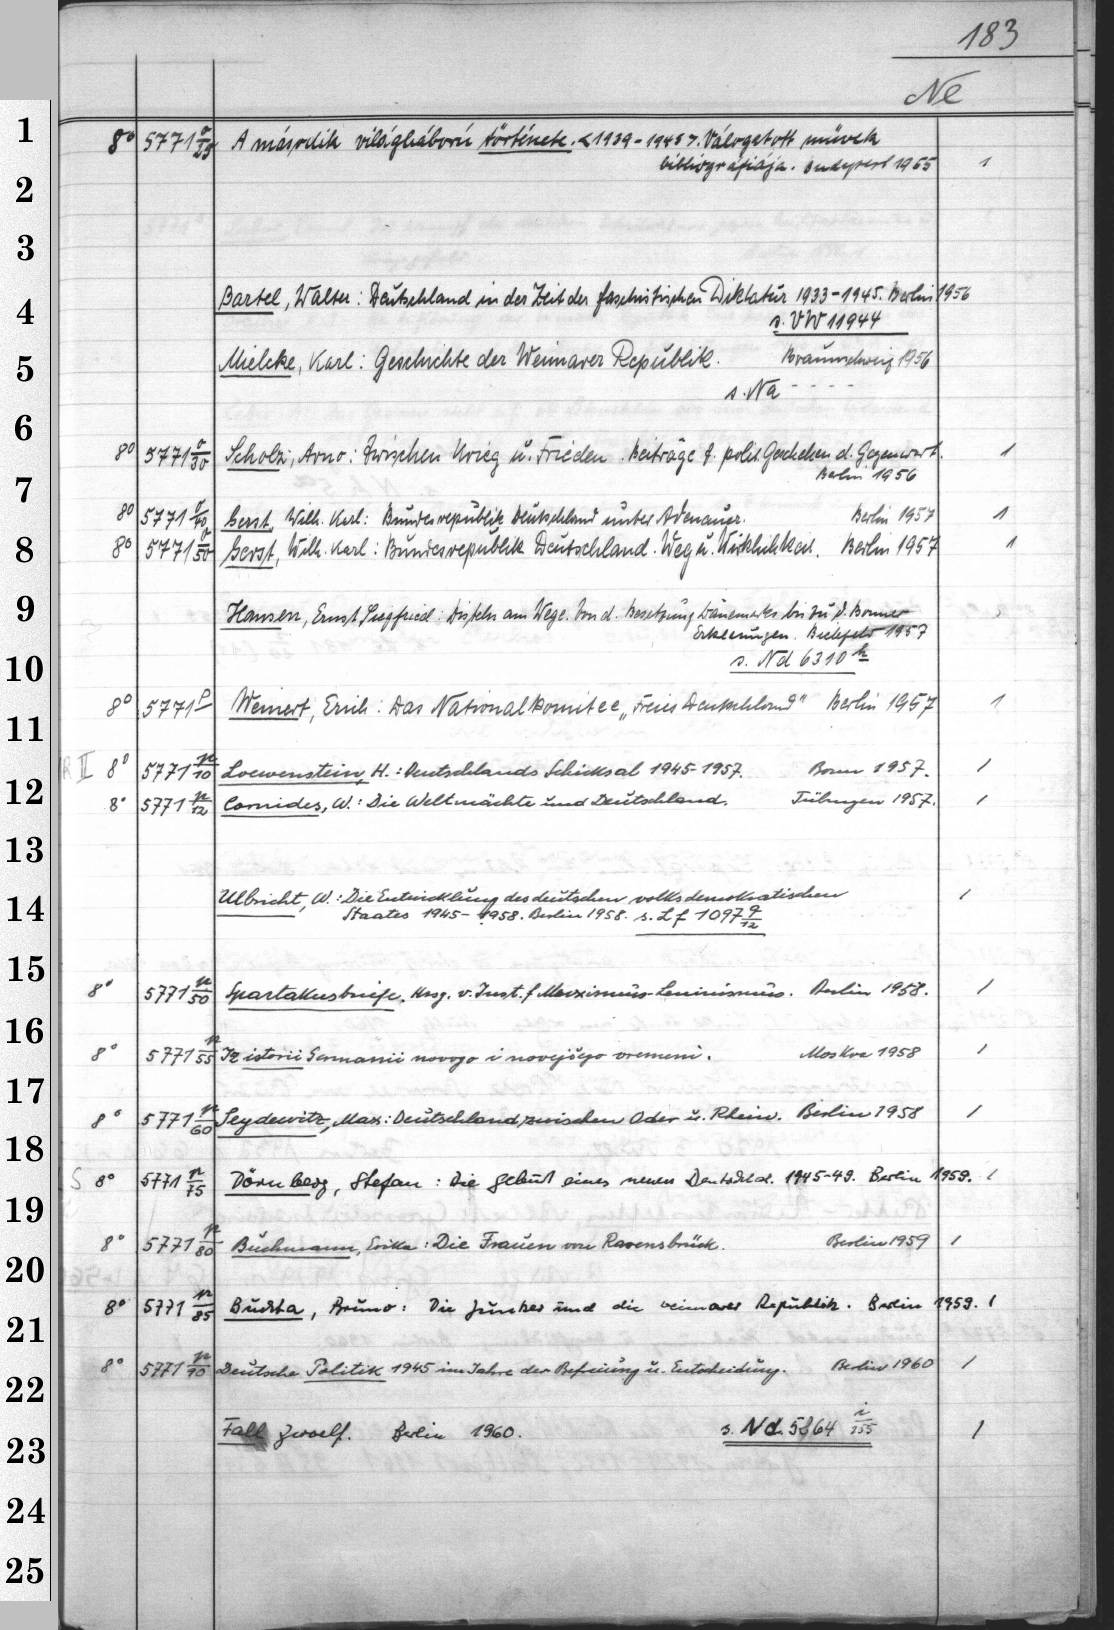 183
Ne
1
8° 5771 o/25 A második világháború története. <1939-1945>. Válogatott művek
bibliográfiája. Budapest 1965 1
2
3
Bartel, Walter: Deutschland in der Zeit der faschistischen Diktatur 1933-1945. Berlin 1956
4
s. VW 11944
5
Mielcke, Karl: Geschichte der Weimarer Republik. Braunschweig 1956
s. Na - - - -
6
8° 5771 o/30 Scholz, Arno: Zwischen Krieg u. Frieden. Beiträge z. polit. Geschehen d. Gegenwart. 1
Berlin 1956
7
8° 5771 o/40 Gerst, Wilh. Karl: Bundesrepublik Deutschland unter Adenauer. Berlin 1957 1
8
8° 5771 o/50 Gerst, Wilh. Karl: Bundesrepublik Deutschland. Weg u. Wirklichkeit. Berlin 1957 1
9
Hansen, Ernst Siegfried: Disteln am Wege. Von d. Besetzung Dänemarks bis zu d. Bonner
Erklärungen. Bielefeld 1957
s. Nd 6310 h
10
8° 5771 p Weinert, Erich: Das Nationalkomitee „Freies Deutschland" Berlin 1957 1
11
R II 8° 5771 p/10 Loewenstein, H.: Deutschlands Schicksal 1945-1957. Bonn 1957. 1
12
8° 5771 p/12 Cornides, W.: Die Weltmächte und Deutschland. Tübingen 1957. 1
13
Ulbricht, W.: Die Entwicklung des deutschen volksdemokratischen 1
14
Staates 1945-1958. Berlin 1958. s. Lf 1097 q/12
15
8° 5771 p/50 Spartakusbriefe. Hrsg. v. Inst. f. Marxismus-Leninismus. Berlin 1958. 1
16
8° 5771 p/55 Iz istorii Germanii novogo i novejšego vremeni. Moskva 1958 1
17
8° 5771 p/60 Seydewitz, Max: Deutschland zwischen Oder u. Rhein. Berlin 1958 1
18
S 8° 5771 p/75 Dörnberg, Stefan: Die Geburt eines neuen Deutschld. 1945-49. Berlin 1959. 1
19
8° 5771 p/80 Buchmann, Erika: Die Frauen von Ravensbrück. Berlin 1959 1
20
8° 5771 p/85 Buchta, Bruno: Die Junker und die Weimarer Republik. Berlin 1959. 1
21
8° 5771 p/90 Deutsche Politik 1945 im Jahre der Befreiung u. Entscheidung. Berlin 1960 1
22
Fall zwoelf. Berlin 1960. s. Nd. 5864 i/255 1
23
24
25